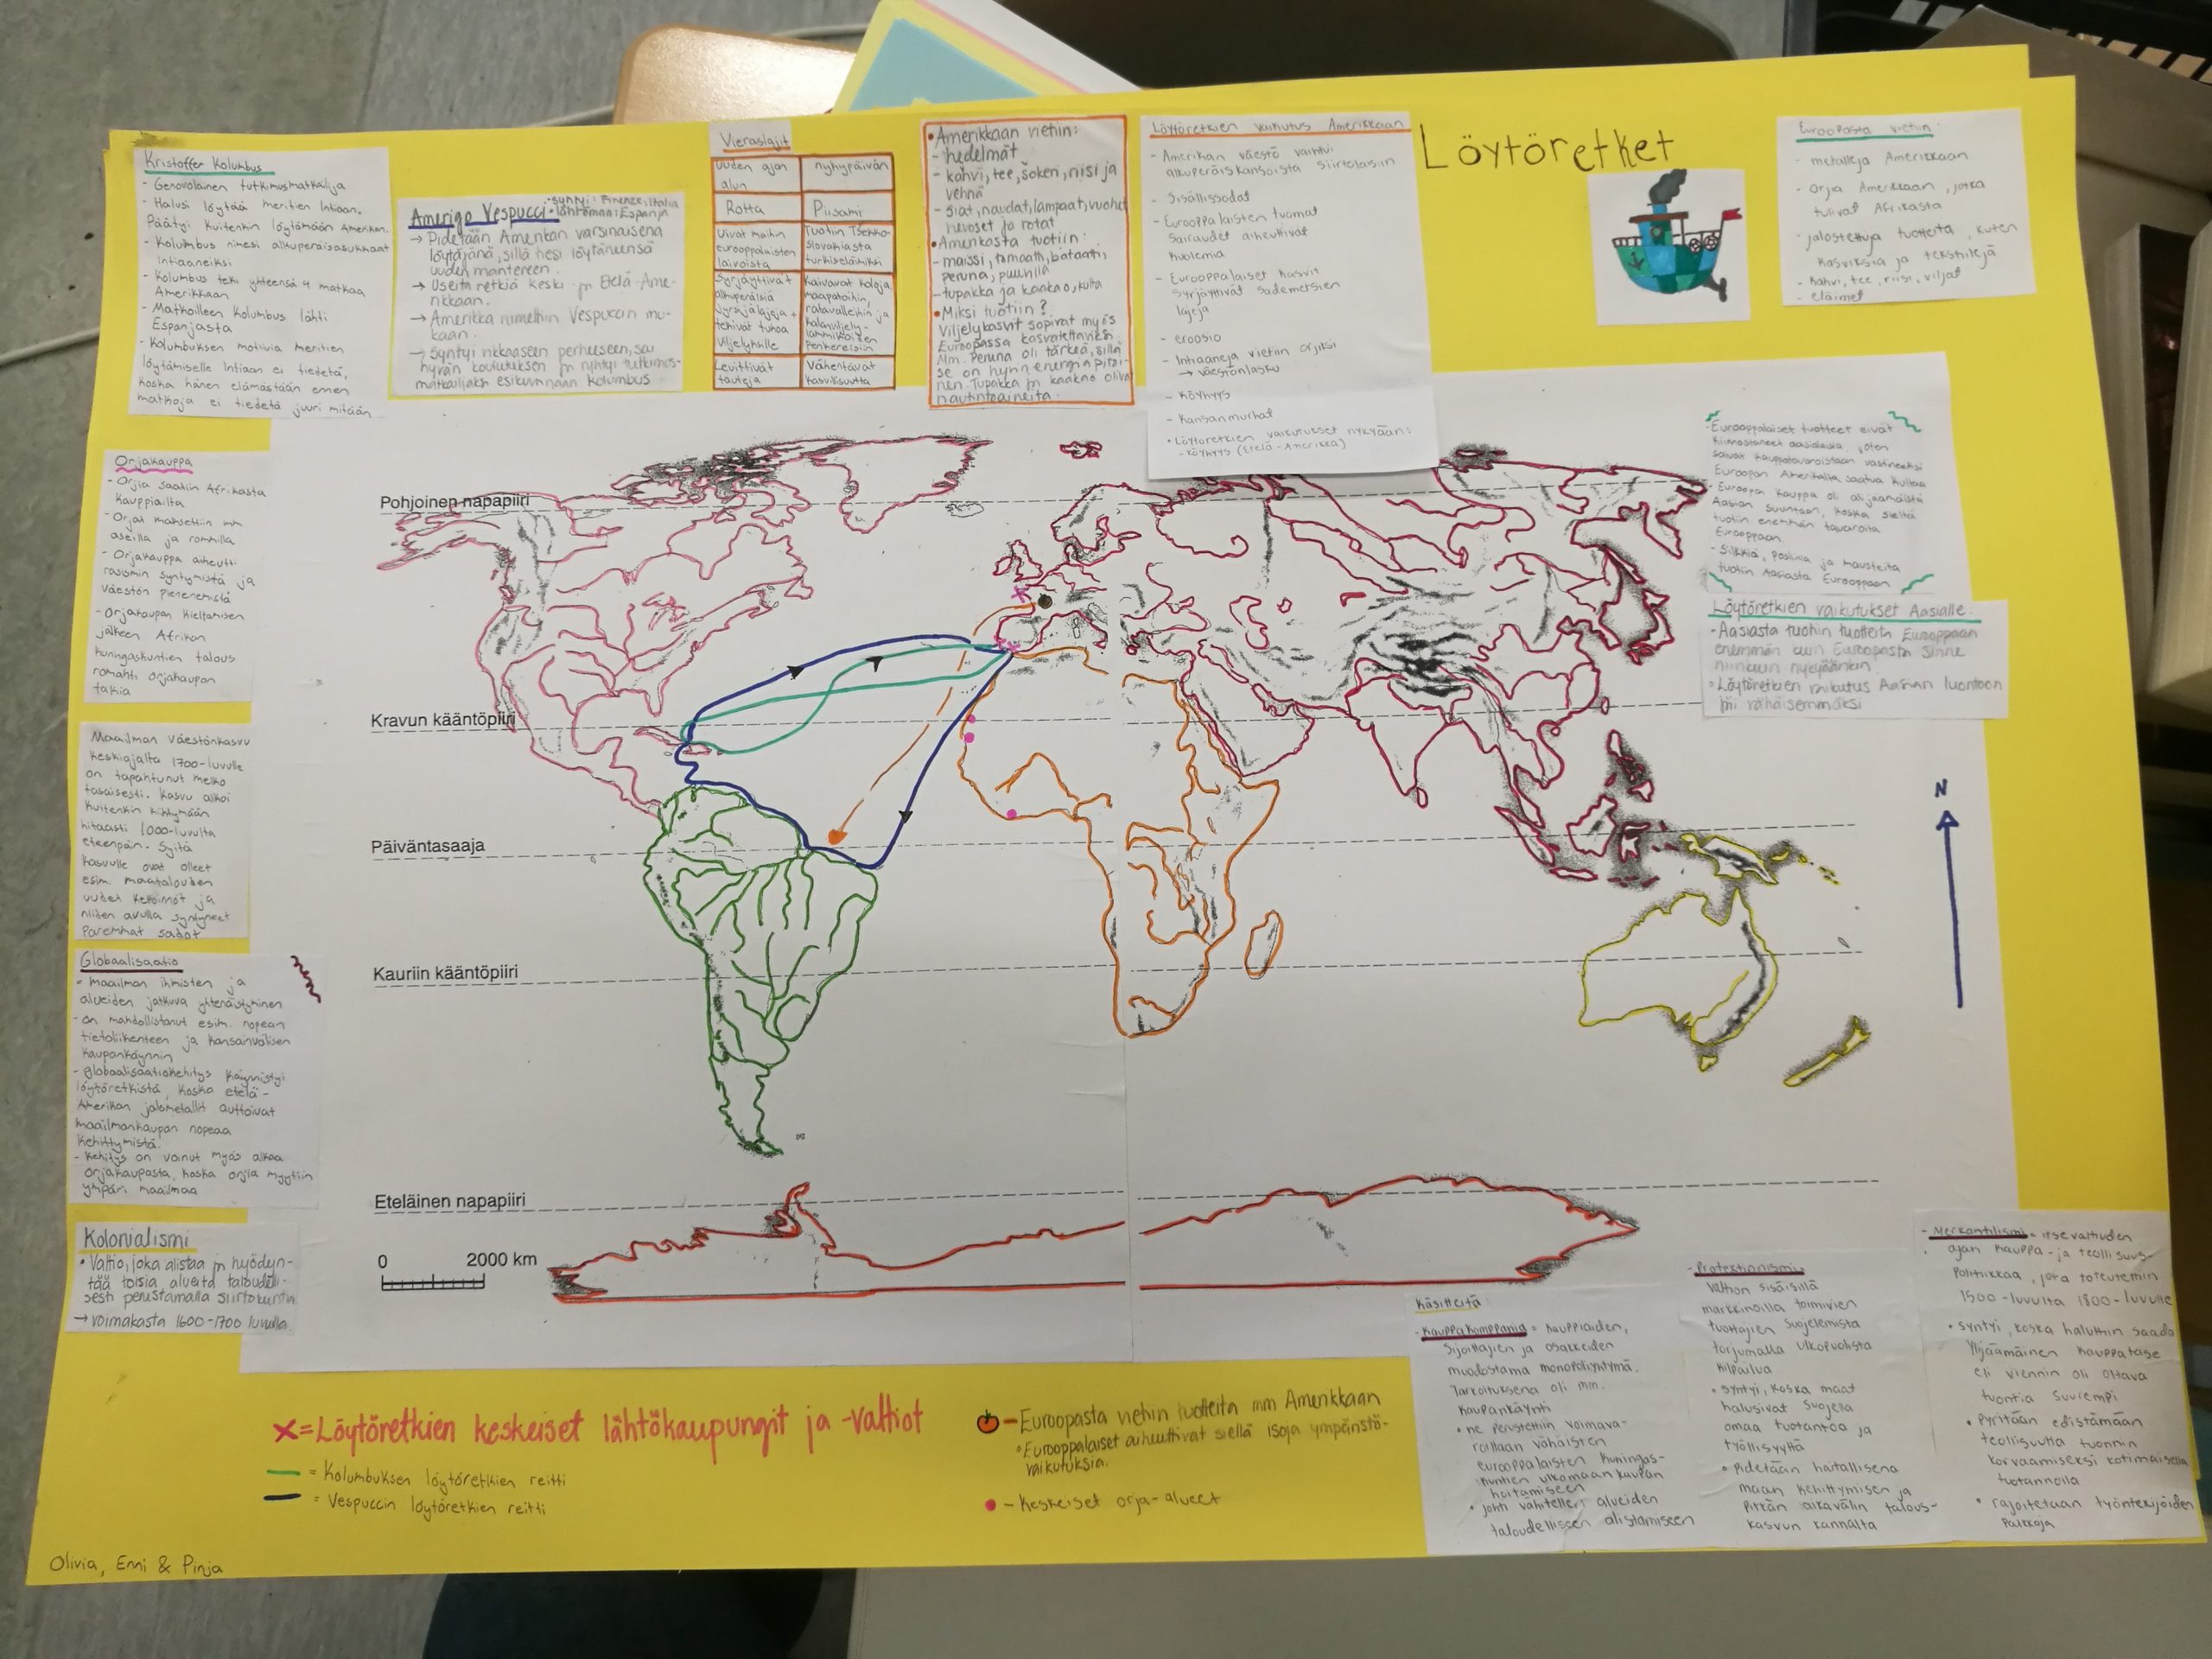 Löytöretket
Kristoffer Kolumbus
- Genovalainen tutkimusmatkailija
- Halusi löytää meritien Intiaan.
Päätyi kuitenkin löytämään Amerikan.
- Kolumbus nimesi alkuperäisasukkaat
intiaaneiksi
- Kolumbus teki yhteensä 4 matkaa
Amerikkaan
- Matkoilleen Kolumbus lähti
Espanjasta
- Kolumbuksen motiivia meritien
löytämiselle Intiaan ei tiedetä,
koska hänen elämästään ennen
matkoja ei tiedetä juuri mitään
Amerigo Vespucci
• syntyi: Firenze, Italia
• lähtömaa: Espanja
→ Pidetään Amerikan varsinaisena
löytäjänä, sillä tiesi löytäneensä
uuden mantereen.
→ Useita retkiä Keski- ja Etelä-Ame-
rikkaan.
→ Amerikka nimettiin Vespuccin mu-
kaan.
→ Syntyi rikkaaseen perheeseen, sai
hyvän koulutuksen ja ryhtyi tutkimus-
matkailijaksi esikuvanaan Kolumbus
Vieraslajit
uuden ajan alun
nykypäivän
Rotta
Piisami
Uivat maihin
eurooppalaisten
laivoista
Tuotiin Tsekko-
slovakiasta
turkiseläimiksi
Syrjäyttivät
alkuperäisiä
jyrsijälajeja +
tekivät tuhoa
viljelyksille
Kaivavat koloja
maapatoihin,
ratavalleihin ja
kalanviljely-
lammikoiden
penkereisiin
Levittivät
tauteja
Vähentävät
kasvikuutta
• Amerikkaan vietiin:
- hedelmät
- kahvi, tee, sokeri, riisi ja
vehnä
- siat, naudat, lampaat, vuohet
hevoset ja rotat
• Amerikasta tuotiin:
- maissi, tomaatti, bataatti,
peruna, puuvilla
- tupakka ja kaakao, kulta
• Miksi tuotiin?
Viljelykasvit sopivat myös
Euroopassa kasvatettaviksi.
Mm. Peruna oli tärkeä, sillä
se on hyvin energiapitoi-
nen. Tupakka ja kaakao olivat
nautintoaineita.
Löytöretkien vaikutus Amerikkaan
- Amerikan väestö vaihtui
alkuperäiskansoista siirtolaisiin
- Sisällissodat
- Eurooppalaisten tuomat
sairaudet aiheuttivat
kuolemia
- Eurooppalaiset kasvit
syrjäyttivät sademetsien
lajeja
- eroosio
- Intiaaneja vietiin orjiksi
→ väestönlasku
- köyhyys
- Kansanmurhat
• Löytöretkien vaikutukset nykyään:
- köyhyys (Etelä-Amerikka)
Euroopasta vietiin:
- metalleja Amerikkaan
- Orja Amerikkaan, jotka
tulivat Afrikasta
- jalostettuja tuotteita, kuten
kasviksia ja tekstiilejä
- kahvi, tee, riisi, viljat
- eläimet
- Eurooppalaiset tuotteet eivät
kiinnostaneet aasialaisia, joten
saivat kauppatavaroistaan vastineeksi
Euroopan Amerikalta saatua kultaa
- Euroopan kauppa oli alijäämäistä
Aasian suuntaan, koska sieltä
tuotiin enemmän tavaroita
Eurooppaan.
- Silkkiä, posliinia ja mausteita
tuotiin Aasiasta Eurooppaan
Löytöretkien vaikutukset Aasialle.
- Aasiasta tuotiin tuotteita Eurooppaan
enemmän kuin Euroopasta sinne
niinkuin nykyäänkin
• Löytöretkien vaikutus Aasian luontoon
jäi vähäisemmäksi
Orjakauppa
- Orjia saatiin Afrikasta
kauppiailta
- Orjat maksettiin mm
aseilla ja rommilla
- Orjakauppa aiheutti
rasismin syntymistä ja
väestön pienenemistä
- Orjakaupan kieltämisen
jälkeen Afrikan
kuningaskuntien talous
romahti orjakaupan
takia
Maailman väestönkasvu
keskiajalta 1700-luvulle
on tapahtunut melko
tasaisesti. Kasvu alkoi
kuitenkin kiihtymään
hitaasti 1000-luvulta
eteenpäin. Syitä
kasvulle ovat olleet
esim. maatalouden
uudet keksinnöt ja
niiden avulla syntyneet
paremmat sadot
Globaalisaatio
= maailman ihmisten ja
alueiden jatkuva yhtenäistyminen
- on mahdollistanut esim. nopean
tietoliikenteen ja kansainvälisen
kaupankäynnin
- globaalisaatiokehitys käynnistyi
löytöretkistä, koska etelä-
Amerikan jalometallit auttoivat
maailmankaupan nopeaa
kehittymistä.
- Kehitys on voinut myös alkaa
orjakaupasta, koska orjia myytiin
ympäri maailmaa
Kolonialismi
• Valtio, joka alistaa ja hyödyn-
tää toisia alueita taloudelli-
sesti perustamalla siirtokuntia
→ voimakasta 1600-1700 luvulla.
Pohjoinen napapiiri
Kravun kääntöpiiri
Päiväntasaaja
Kauriin kääntöpiiri
Eteläinen napapiiri
0 2000 km
N
x = Löytöretkien keskeiset lähtökaupungit ja -valtiot
= Kolumbuksen löytöretkien reitti
= Vespuccin löytöretkien reitti
- Euroopasta vietiin tuotteita mm Amerikkaan
• Eurooppalaiset aiheuttivat siellä isoja ympäristö-
vaikutuksia.
- Keskeiset orja-alueet
Käsitteitä:
- Kauppakomppania = kauppiaiden,
sijoittajien ja osakkeiden
muodostama monopoliyhtymä.
Tarkoituksena oli mm.
kaupankäynti
• ne perustettiin voimava-
roiltaan vähäisten
eurooppalaisten kuningas-
kuntien ulkomaankaupan
hoitamiseen
• johti vähitellen alueiden
taloudelliseen alistamiseen
- Protektionismi =
Valtion sisäisillä
markkinoilla toimivien
tuottajien suojelemista
torjumalla ulkopuolista
kilpailua
• syntyi, koska maat
halusivat suojella
omaa tuotantoa ja
työllisyyttä
• Pidetään haitallisena
maan kehittymisen ja
pitkän aikavälin talous-
kasvun kannalta
- Merkantilismi = itsevaltiuden
ajan kauppa- ja teollisuus-
politiikkaa, jota toteutettiin
1500-luvulta 1800-luvulle
• syntyi, koska haluttiin saada
ylijäämäinen kauppatase
eli viennin oli oltava
tuontia suurempi
• Pyritään edistämään
teollisuutta tuonnin
korvaamiseksi kotimaisella
tuotannolla
• rajoitetaan työntekijöiden
palkkoja
Olivia, Enni & Pinja